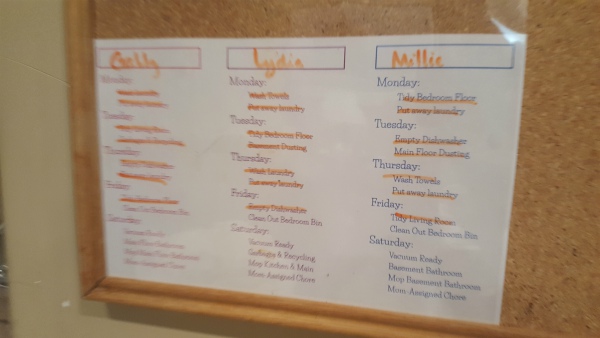 Lydia
Millie
Monday:
Tuesday:
Thursday:
Friday:
Clean Out Bedroom Bin
Saturday:
Vacuum Ready
Mom-Assigned Chore
Monday:
Wash Towels
Put away laundry
Tuesday:
Tidy Bedroom Floor
Basement Dusting
Thursday:
Wash Laundry
Put away laundry
Friday:
Empty Dishwasher
Clean Out Bedroom Bin
Saturday:
Vacuum Ready
Garbage & Recycling
Mop Kitchen & Main
Mom-Assigned Chore
Monday:
Tidy Bedroom Floor
Put away laundry
Tuesday:
Empty Dishwasher
Main Floor Dusting
Thursday:
Wash Towels
Put away laundry
Friday:
Tidy Living Room
Clean Out Bedroom Bin
Saturday:
Vacuum Ready
Basement Bathroom
Mop Basement Bathroom
Mom-Assigned Chore